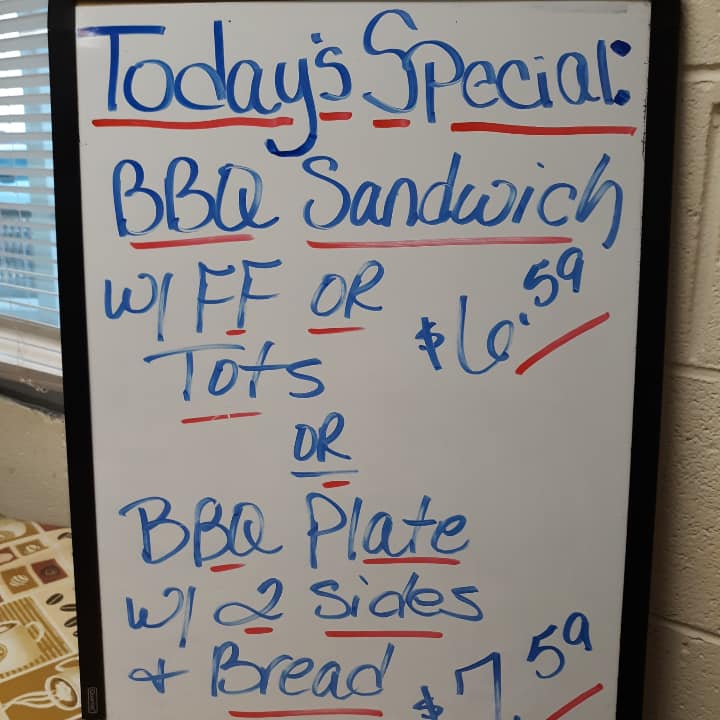 Today's Special:
BBQ Sandwich
W/ FF OR
$6.59
Tots
OR
BBQ Plate
W/ 2 Sides
+ Bread $7.59